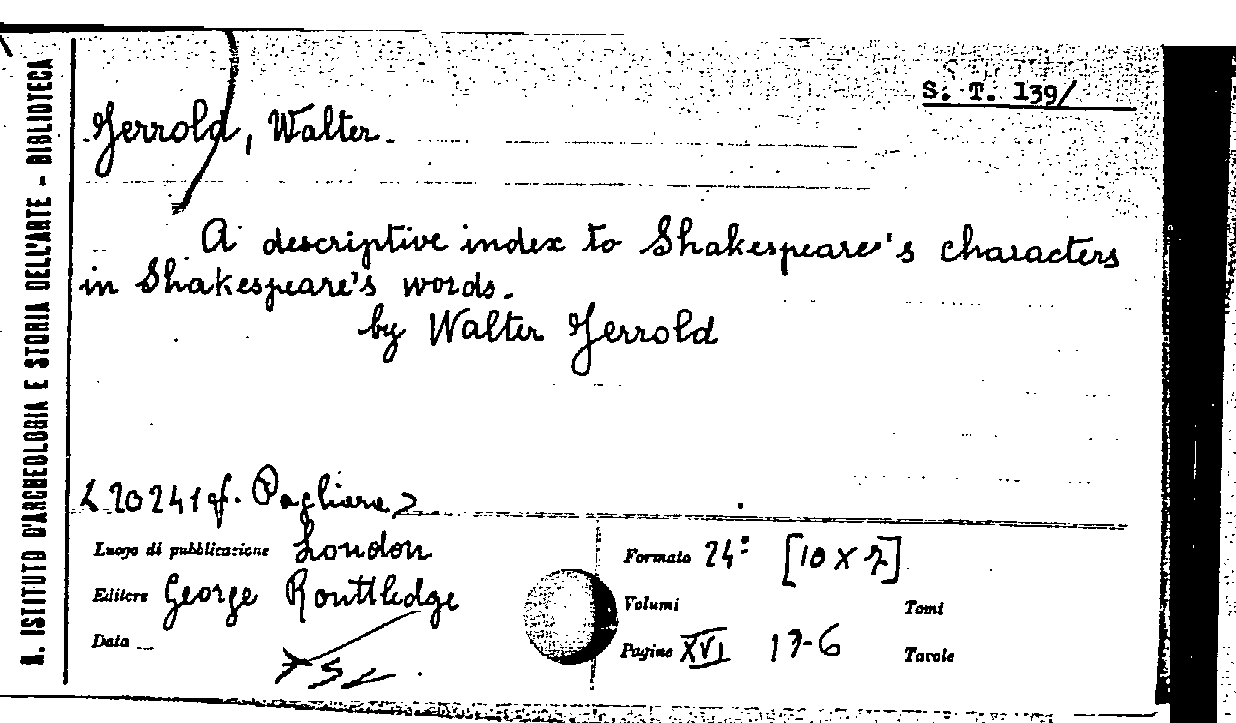 R. ISTITUTO D'ARCHEOLOGIA E STORIA DELL'ARTE - BIBLIOTECA
S. T. 139/
Jerrold, Walter.
A descriptive index to Shakespeare's characters
in Shakespeare's words.
by Walter Jerrold
< 20241 f. Pagliara >
Luogo di pubblicazione London
Editore George Routtledge
Data
Formato 24° [10 x 7]
Volumi Tomi
Pagine XVI 176 Tavole